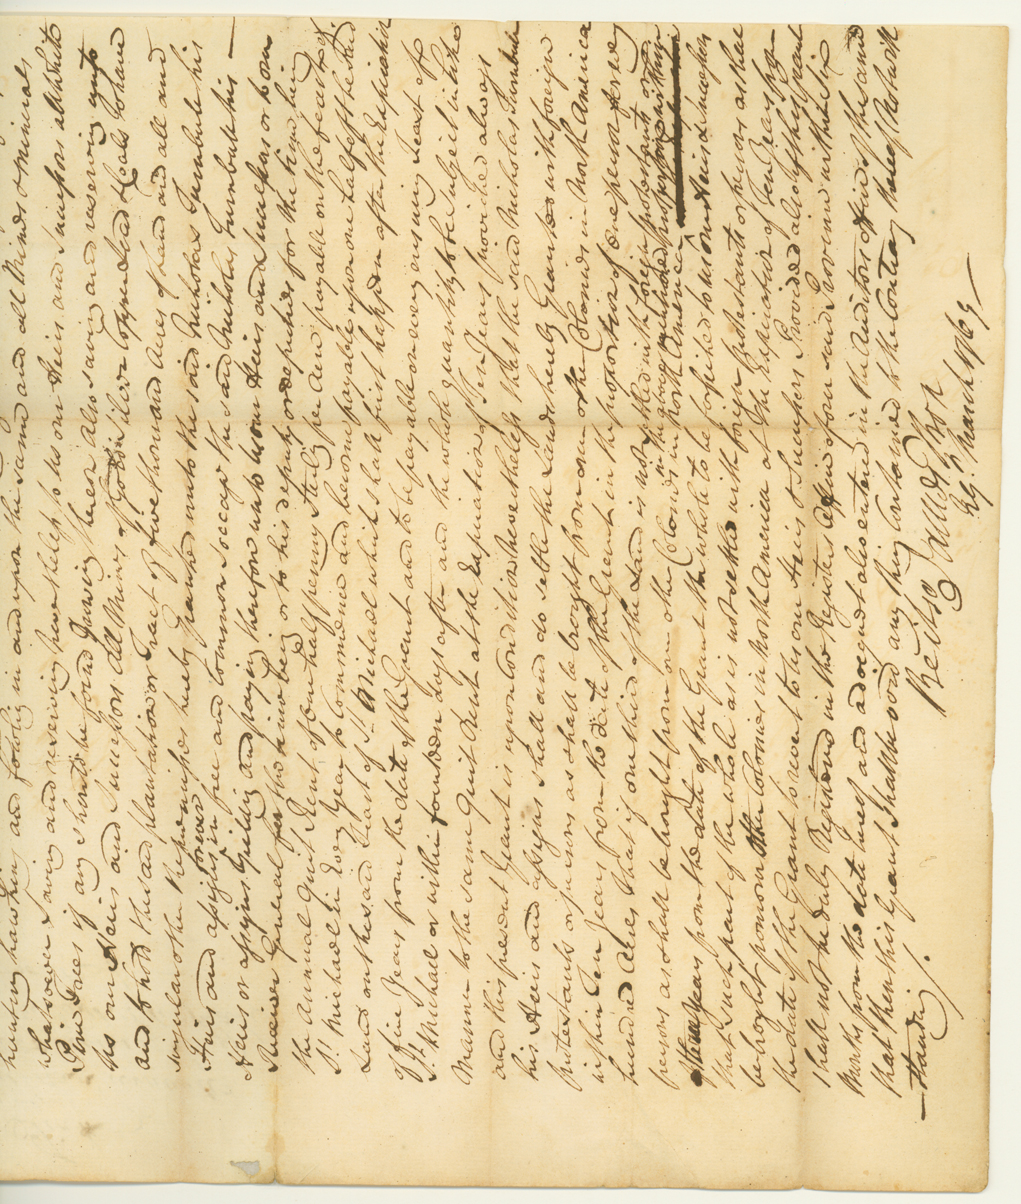 hunting hawking and fowling in and upon the same and all Mines & Minerals
whatsoever Saving and reserving nevertheless to us our Heirs and Successors all white
Pine Trees if any should be found growing thereon also saving and reserving unto
us our Heirs and Successors all Mines of Gold silver Copper Lead & Coals To have
and to hold the said plantation or Tract of five thousand Acres of Land and all and
singular other the premises hereby Granted unto the said Nicholas Turnbull his
Heirs and assigns forever in free and common soccage the said Nicholas Turnbull his
Heirs or assigns Yielding and paying therefor unto us our Heirs and Successors or to our
Receiver General for the time being or to his deputy or deputies for the time being
the annual Quit Rent of one half penny Sterling per Acre payable on the feast of
St. Michael in Every Year to Commence and become payable upon one half of the said
Land on the said Feast of St. Michael which shall first happen after the Expiration
of five Years from the date of the Grant and to be payable on every ensuing Feast of
St. Michael or within fourteen days after and the whole quantity to be subject in like
Manner to the same Quit Rent at the Expiration of Ten Years provided always
and this present Grant is upon Condition nevertheless that the said Nicholas Turnbull
his Heirs and assigns shall and do settle the Lands hereby Granted with foreign
protestants or persons as shall be brought from our other Colonies in North America
within Ten Years from the date of the Grant in the proportion of one person for every
hundred Acres That if one third of the Land is not settled with foreign protestants or
persons as shall be brought from our other Colonies in North America in the above mentioned proportion within
three years from the date of the Grant the whole to be forfeited to us our Heirs & Successors
that such part of the whole as is not settled with foreign protestants or persons as shall
be brought from our other Colonies in North America at the Expiration of Ten Years from
the date of the Grant to revert to us our Heirs & Successors Provided also if this Grant
shall not be duly Registered in the Registers Office of our said Province within six
Months from the date hereof and a docquet also entered in the Auditors Office of the same
that then this Grant shall be void any thing contained to the Contrary hereof Notwith
standing.
Rec'd David Yeats
29. March 1769